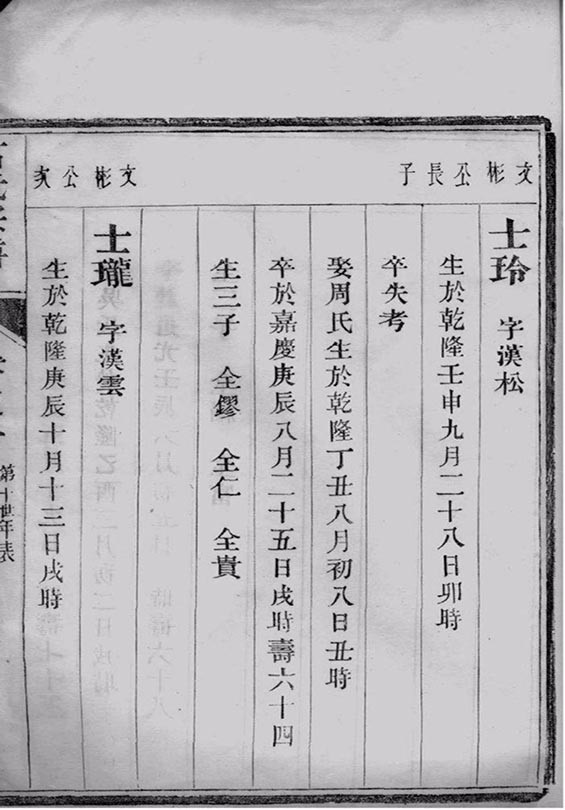 文彬公長子
士玲 字漢松
生於乾隆壬申九月二十八日卯時
卒失考
娶周氏生於乾隆丁丑八月初八日丑時
卒於嘉慶庚辰八月二十五日戌時壽六十四
生三子 全鏐 全仁 全貴
文彬公次
士瓏 字漢雲
生於乾隆庚辰十月十三日戌時
第十世年表